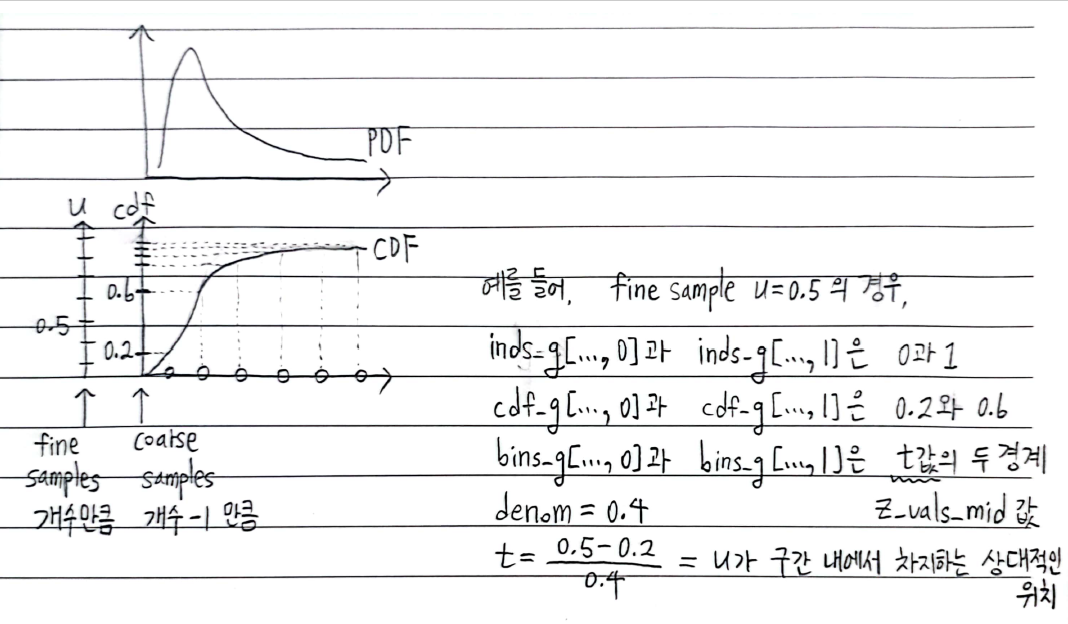 PDF
u cdf
CDF
0.6
0.5
0.2
fine
samples
개수만큼
coarse
samples
개수-1 만큼
예를 들어, fine sample u=0.5의 경우,
inds-g[..., 0]과 inds-g[..., 1]은 0과 1
cdf-g[..., 0]과 cdf-g[..., 1]은 0.2와 0.6
bins-g[..., 0]과 bins-g[..., 1]은 t값의 두 경계
denom = 0.4 Z_vals_mid 값
t = (0.5-0.2)/0.4 = u가 구간 내에서 차지하는 상대적인
위치